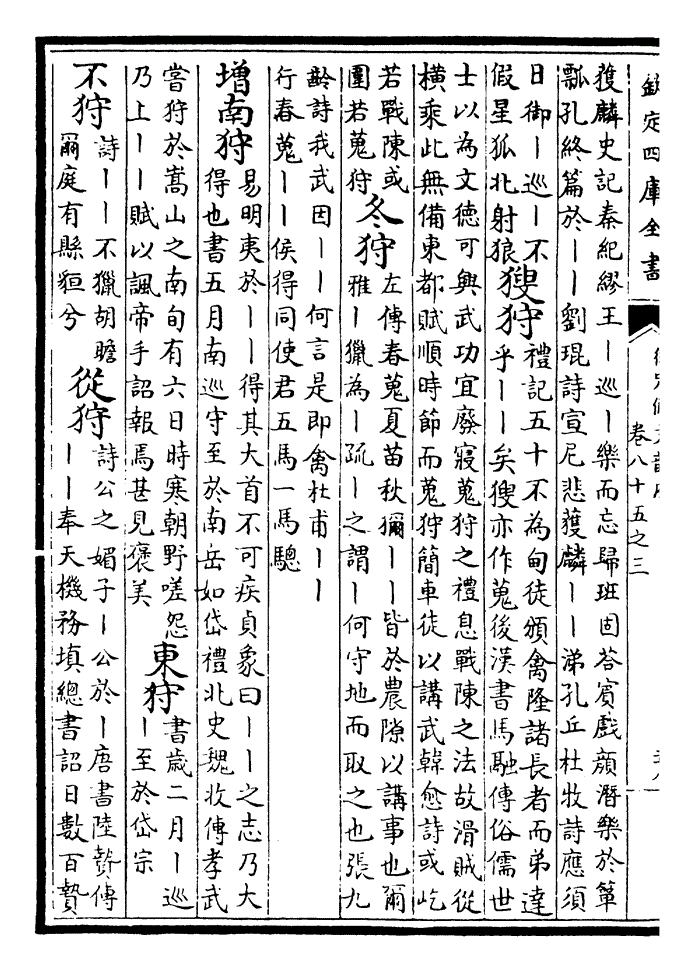 欽定四庫全書
卷八十五之三
獲麟史記秦紀繆王丨巡丨樂而忘歸班固荅賓戲顔潛樂於簞
瓢孔終篇於丨丨劉琨詩宣尼悲獲麟丨丨涕孔丘杜牧詩應須
日御丨巡丨不
假星狐北射狼
獀狩
禮記五十不為甸徒頒禽隆諸長者而弟達
乎丨丨矣獀亦作蒐後漢書馬融傳俗儒世
士以為文德可興武功宜廢寢蒐狩之禮息戰陳之法故滑賊從
橫乘此無備東都賦順時節而蒐狩簡車徒以講武韓愈詩或屹
若戰陳或
圍若蒐狩
冬狩
左傳春蒐夏苗秋獮丨丨皆於農隙以講事也爾
雅丨獵為丨疏丨之謂丨何守地而取之也張九
齡詩我武因丨丨何言是即禽杜甫丨丨
行春蒐丨丨侯得同使君五馬一馬驄
增南狩
易明夷於丨丨得其大首不可疾貞象曰丨丨之志乃大
得也書五月南巡守至於南岳如岱禮北史魏收傳孝武
嘗狩於嵩山之南旬有六日時寒朝野嗟怨
乃上丨丨賦以諷帝手詔報焉甚見褒美
東狩
書歲二月丨巡
丨至於岱宗
不狩
詩丨丨不獵胡瞻
爾庭有縣貆兮
從狩
詩公之媚子丨公於丨唐書陸贄傳
丨丨奉天機務填總書詔日數百贄